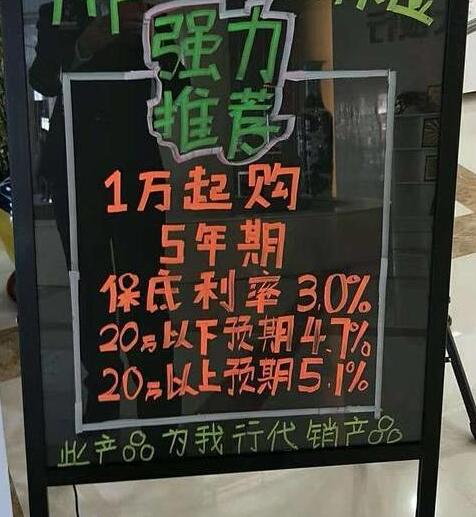 强力
推荐
1万起购
5年期
保底利率3.0%
20万以下预期4.7%
20万以上预期5.1%
此产品为我行代销产品